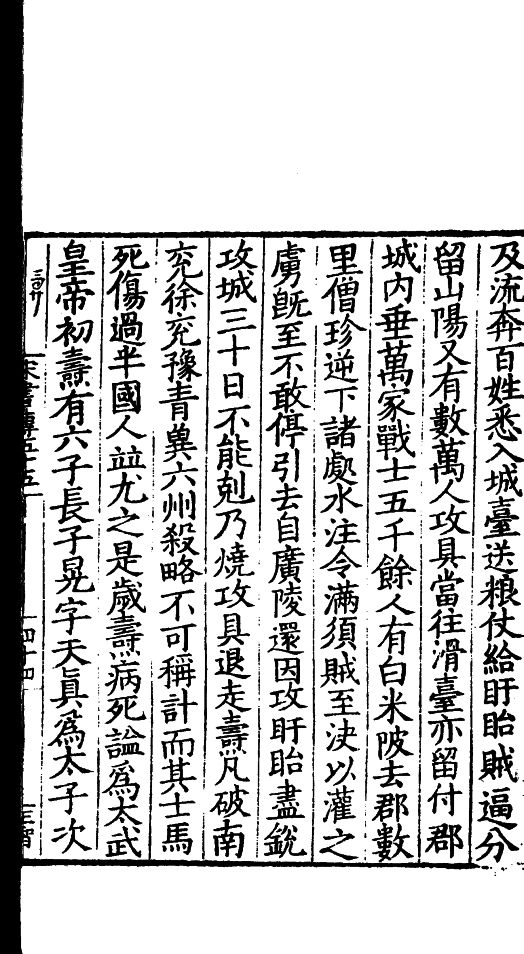 及流奔百姓悉入城臺送粮仗給盱眙賊逼分
留山陽又有數萬人攻具當往滑臺亦留付郡
城内垂萬家戰士五千餘人有白米陂去郡數
里僧珍逆下諸處水注令滿須賊至决以灌之
虜旣至不敢停引去自廣陵還因攻盱眙盡銳
攻城三十日不能剋乃燒攻具退走燾凡破南
兖徐兖豫青兾六州殺略不可稱計而其士馬
死傷過半國人竝尤之是歲燾病死謚爲太武
皇帝初燾有六子長子晃字天眞爲太子次
宋書傳五十五